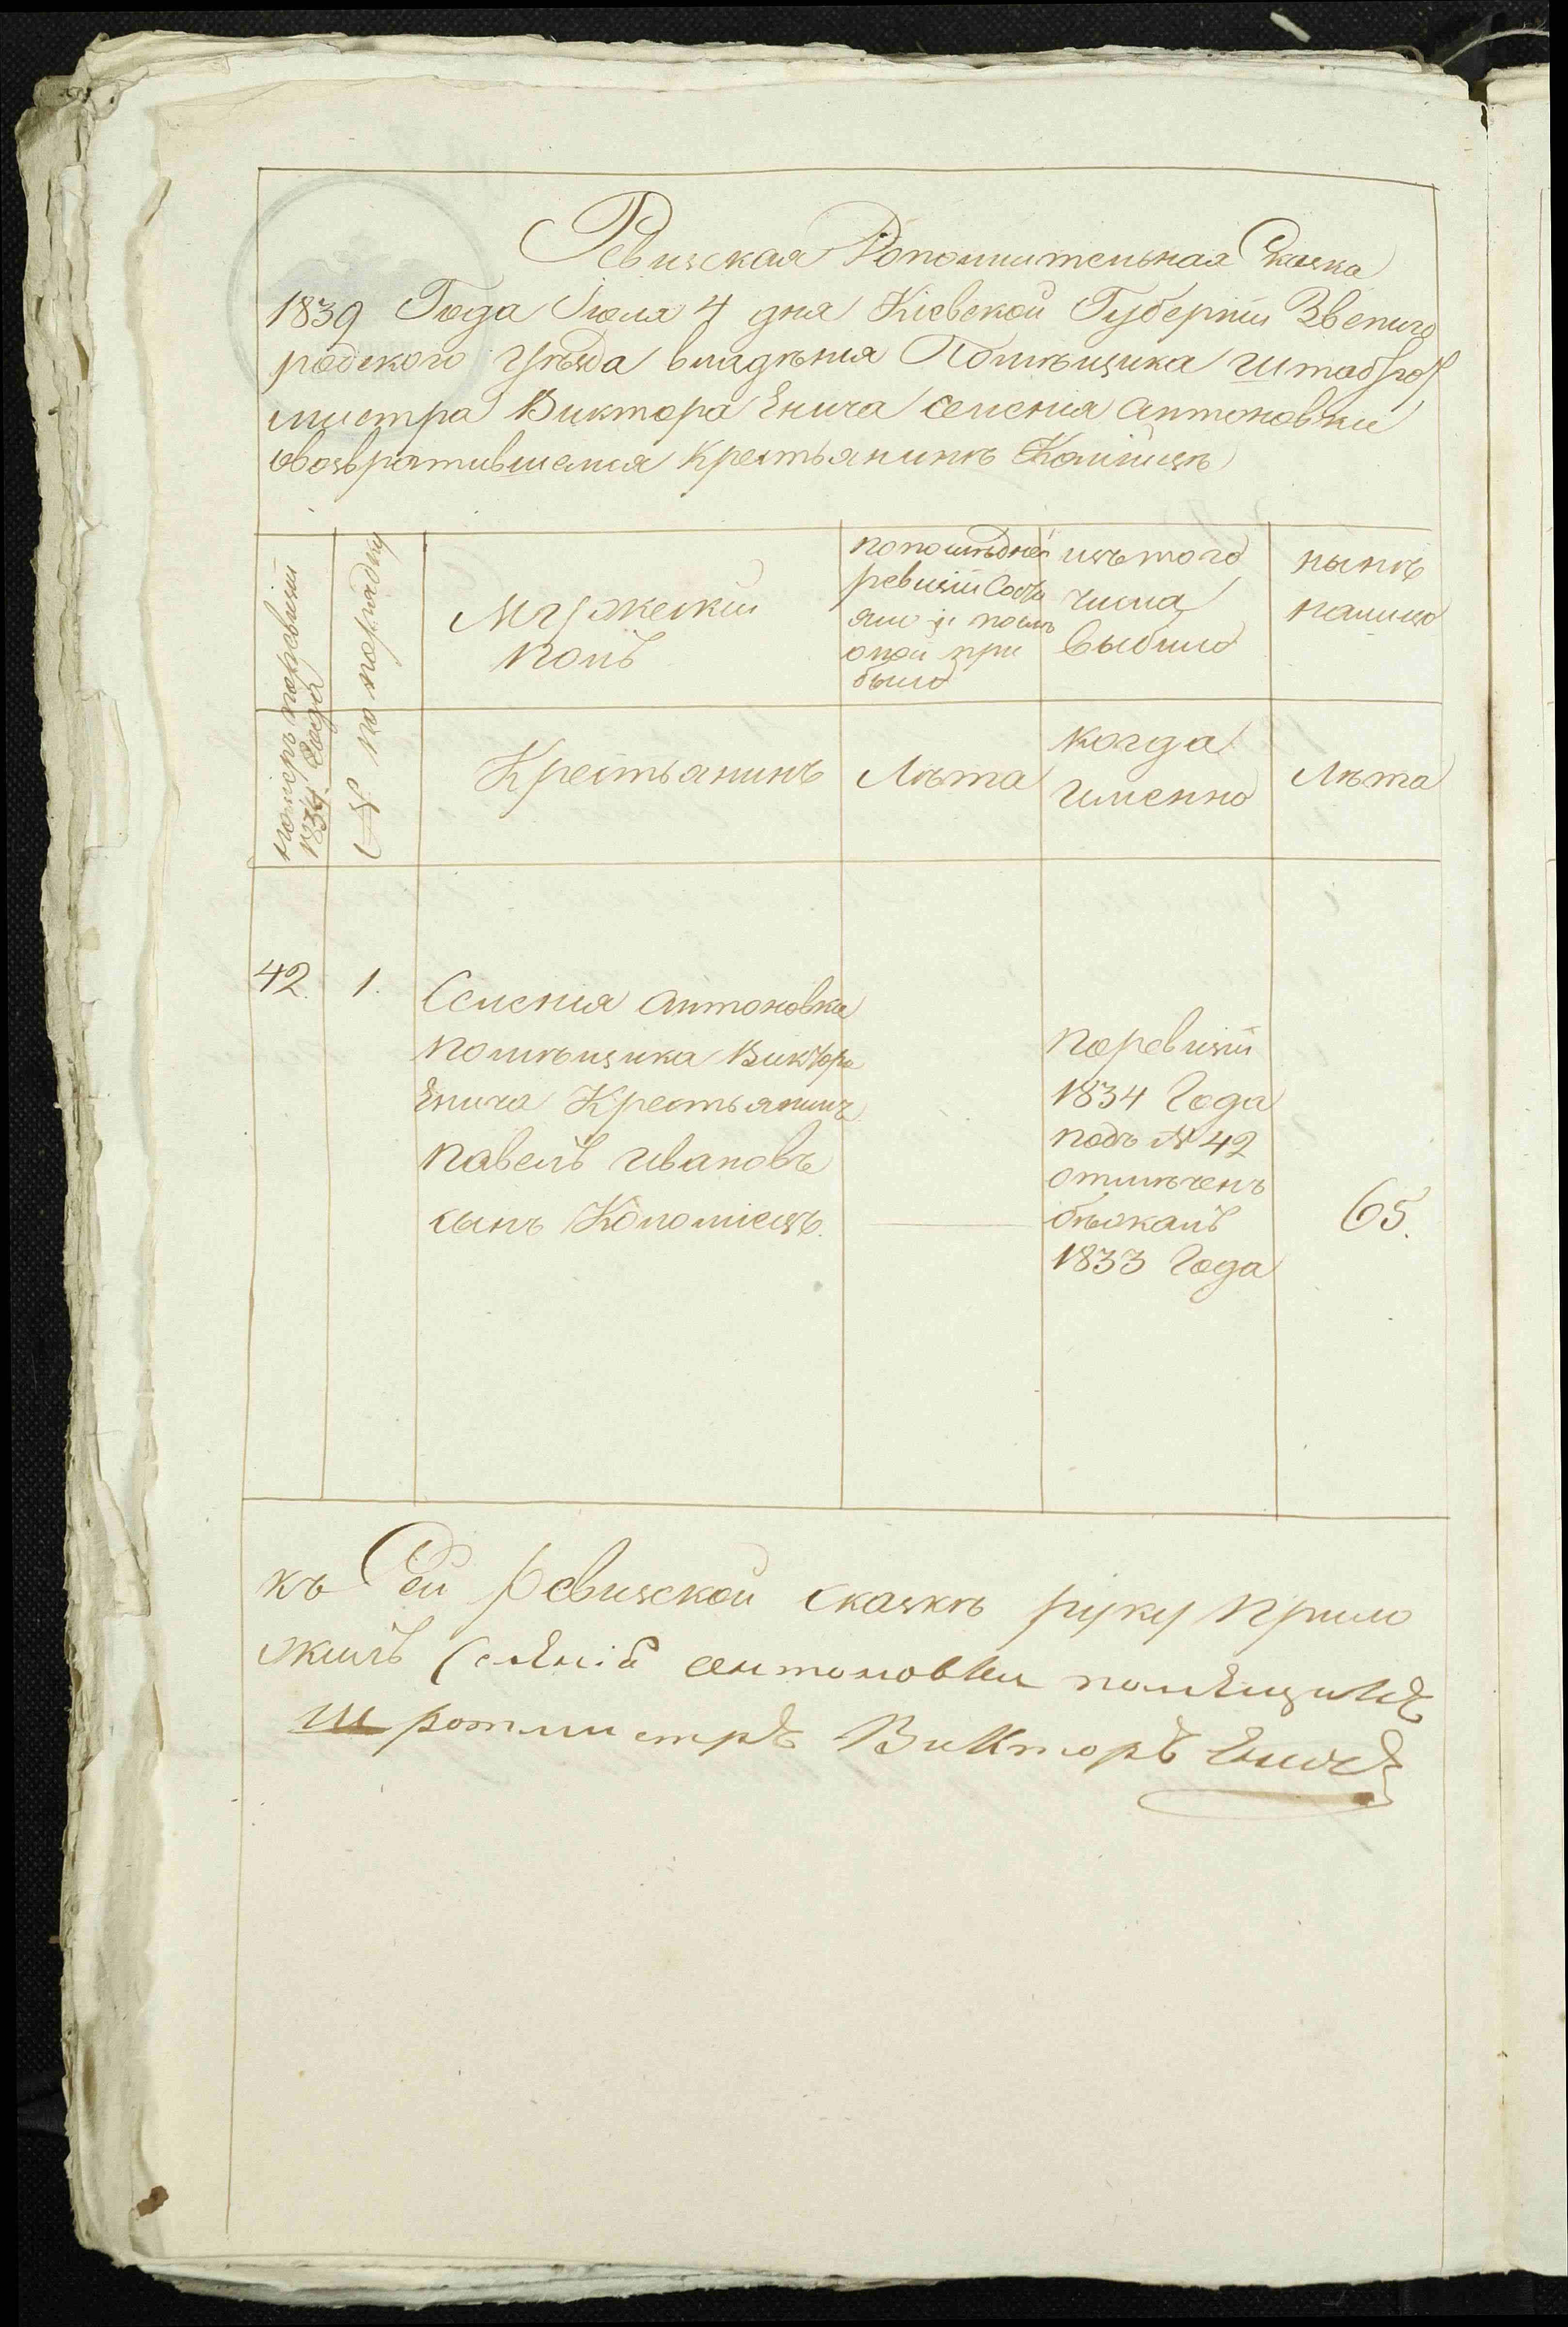 Ревизская Дополнительная Сказка
1839 Года Июля 4 дня Кіевской Губерніи Звениго
родского Уѣзда владѣнія Помѣщика Штабъ рот
мистра Виктора Енича селенія Антоновки
овозвратившемся крестьянинѣ
номеръ поревизіи 1834 Года
№ по порядку
Мужескій
полъ
попослѣдней
ревизіи Состо
яло и послѣ
оной при
было
изъ того
числа
выбыло
нынѣ
налицо
Крестьянинъ
Лѣта
когда
Именно
Лѣта
42.
1.
Селенія Антоновки
помѣщика Виктора
Енича Крестьянинъ
павелъ ивановъ
сынъ Коломіецъ.
поревизіи
1834 Года
подъ № 42
отмѣченъ
бѣжалъ
1833 Года
65.
къ Сей Ревизской сказкѣ руку прило
жилъ Селѣнія антоновки помѣщикъ
Ш ротмистръ Викторъ Еничъ